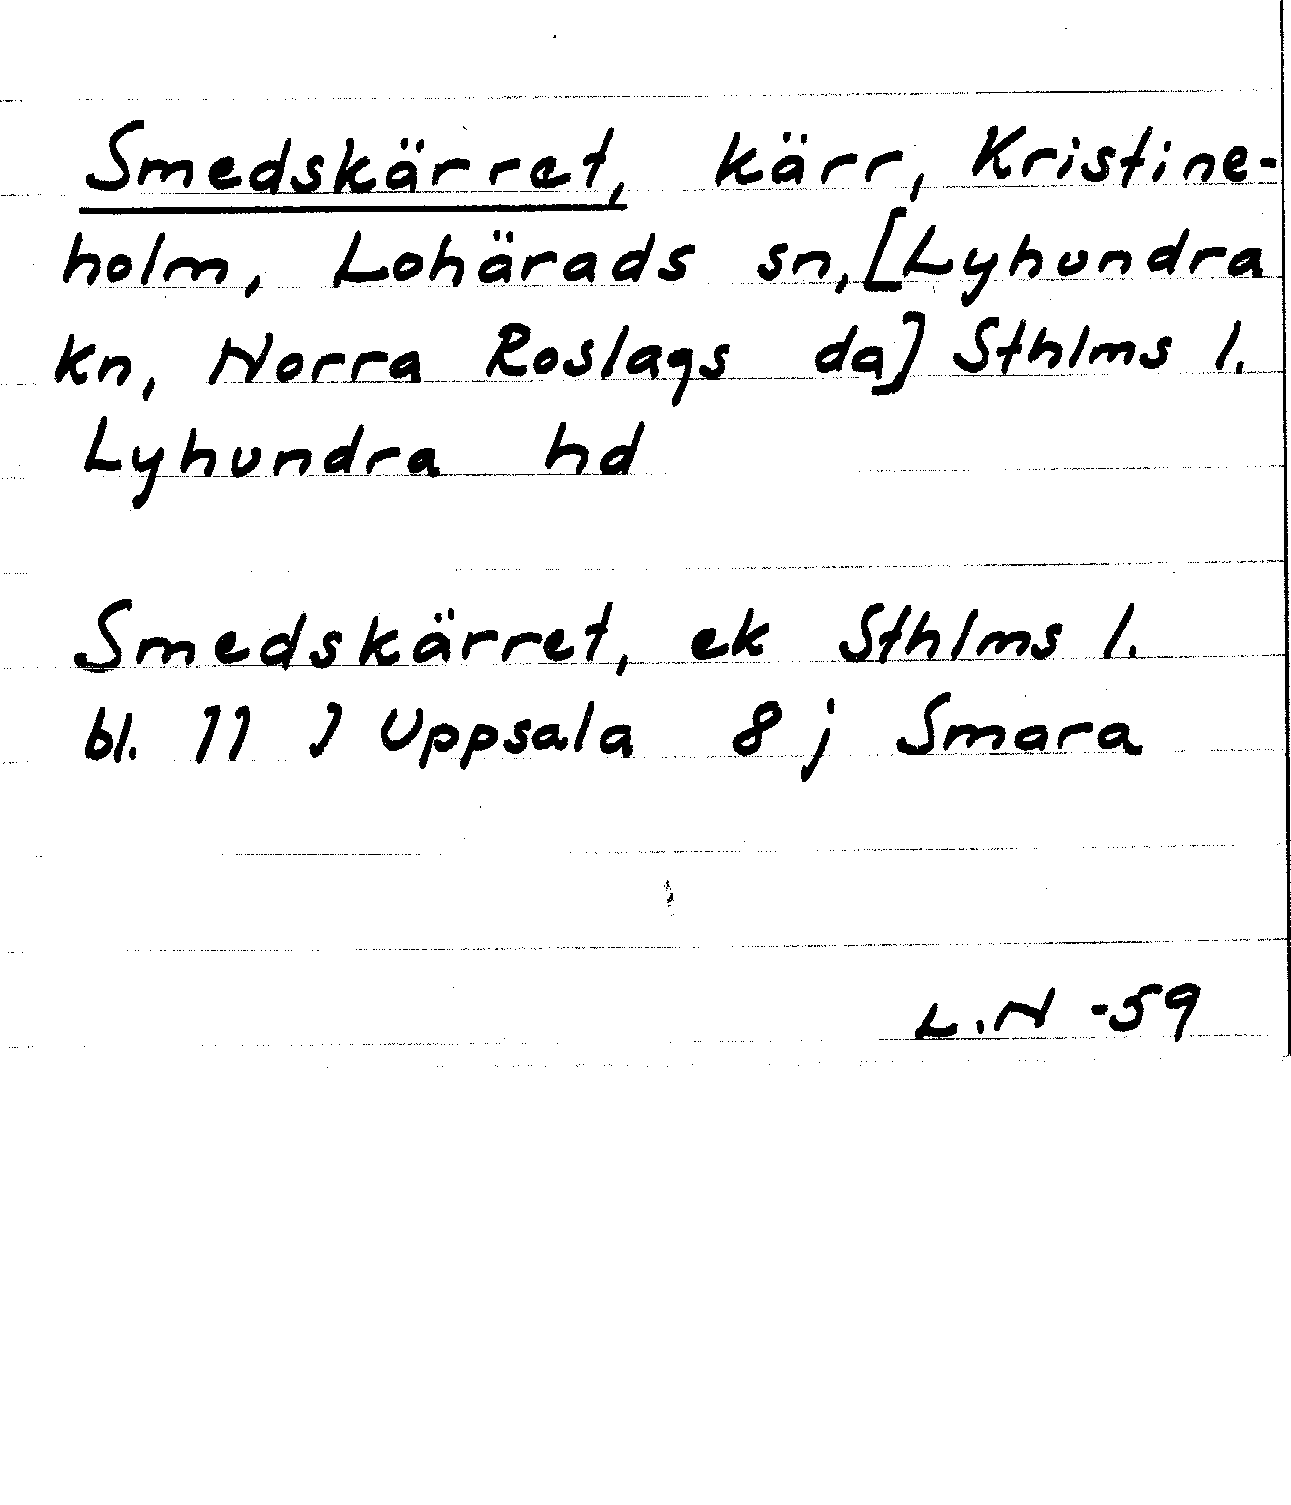 Smedskärret, kärr, Kristine-
holm, Lohärads sn, [Lyhundra
kn, Norra Roslags da] Sthlms l.
Lyhundra hd
Smedskärret, ek Sthlms l.
bl. 11 J Uppsala 8 j Smara
L.N -59